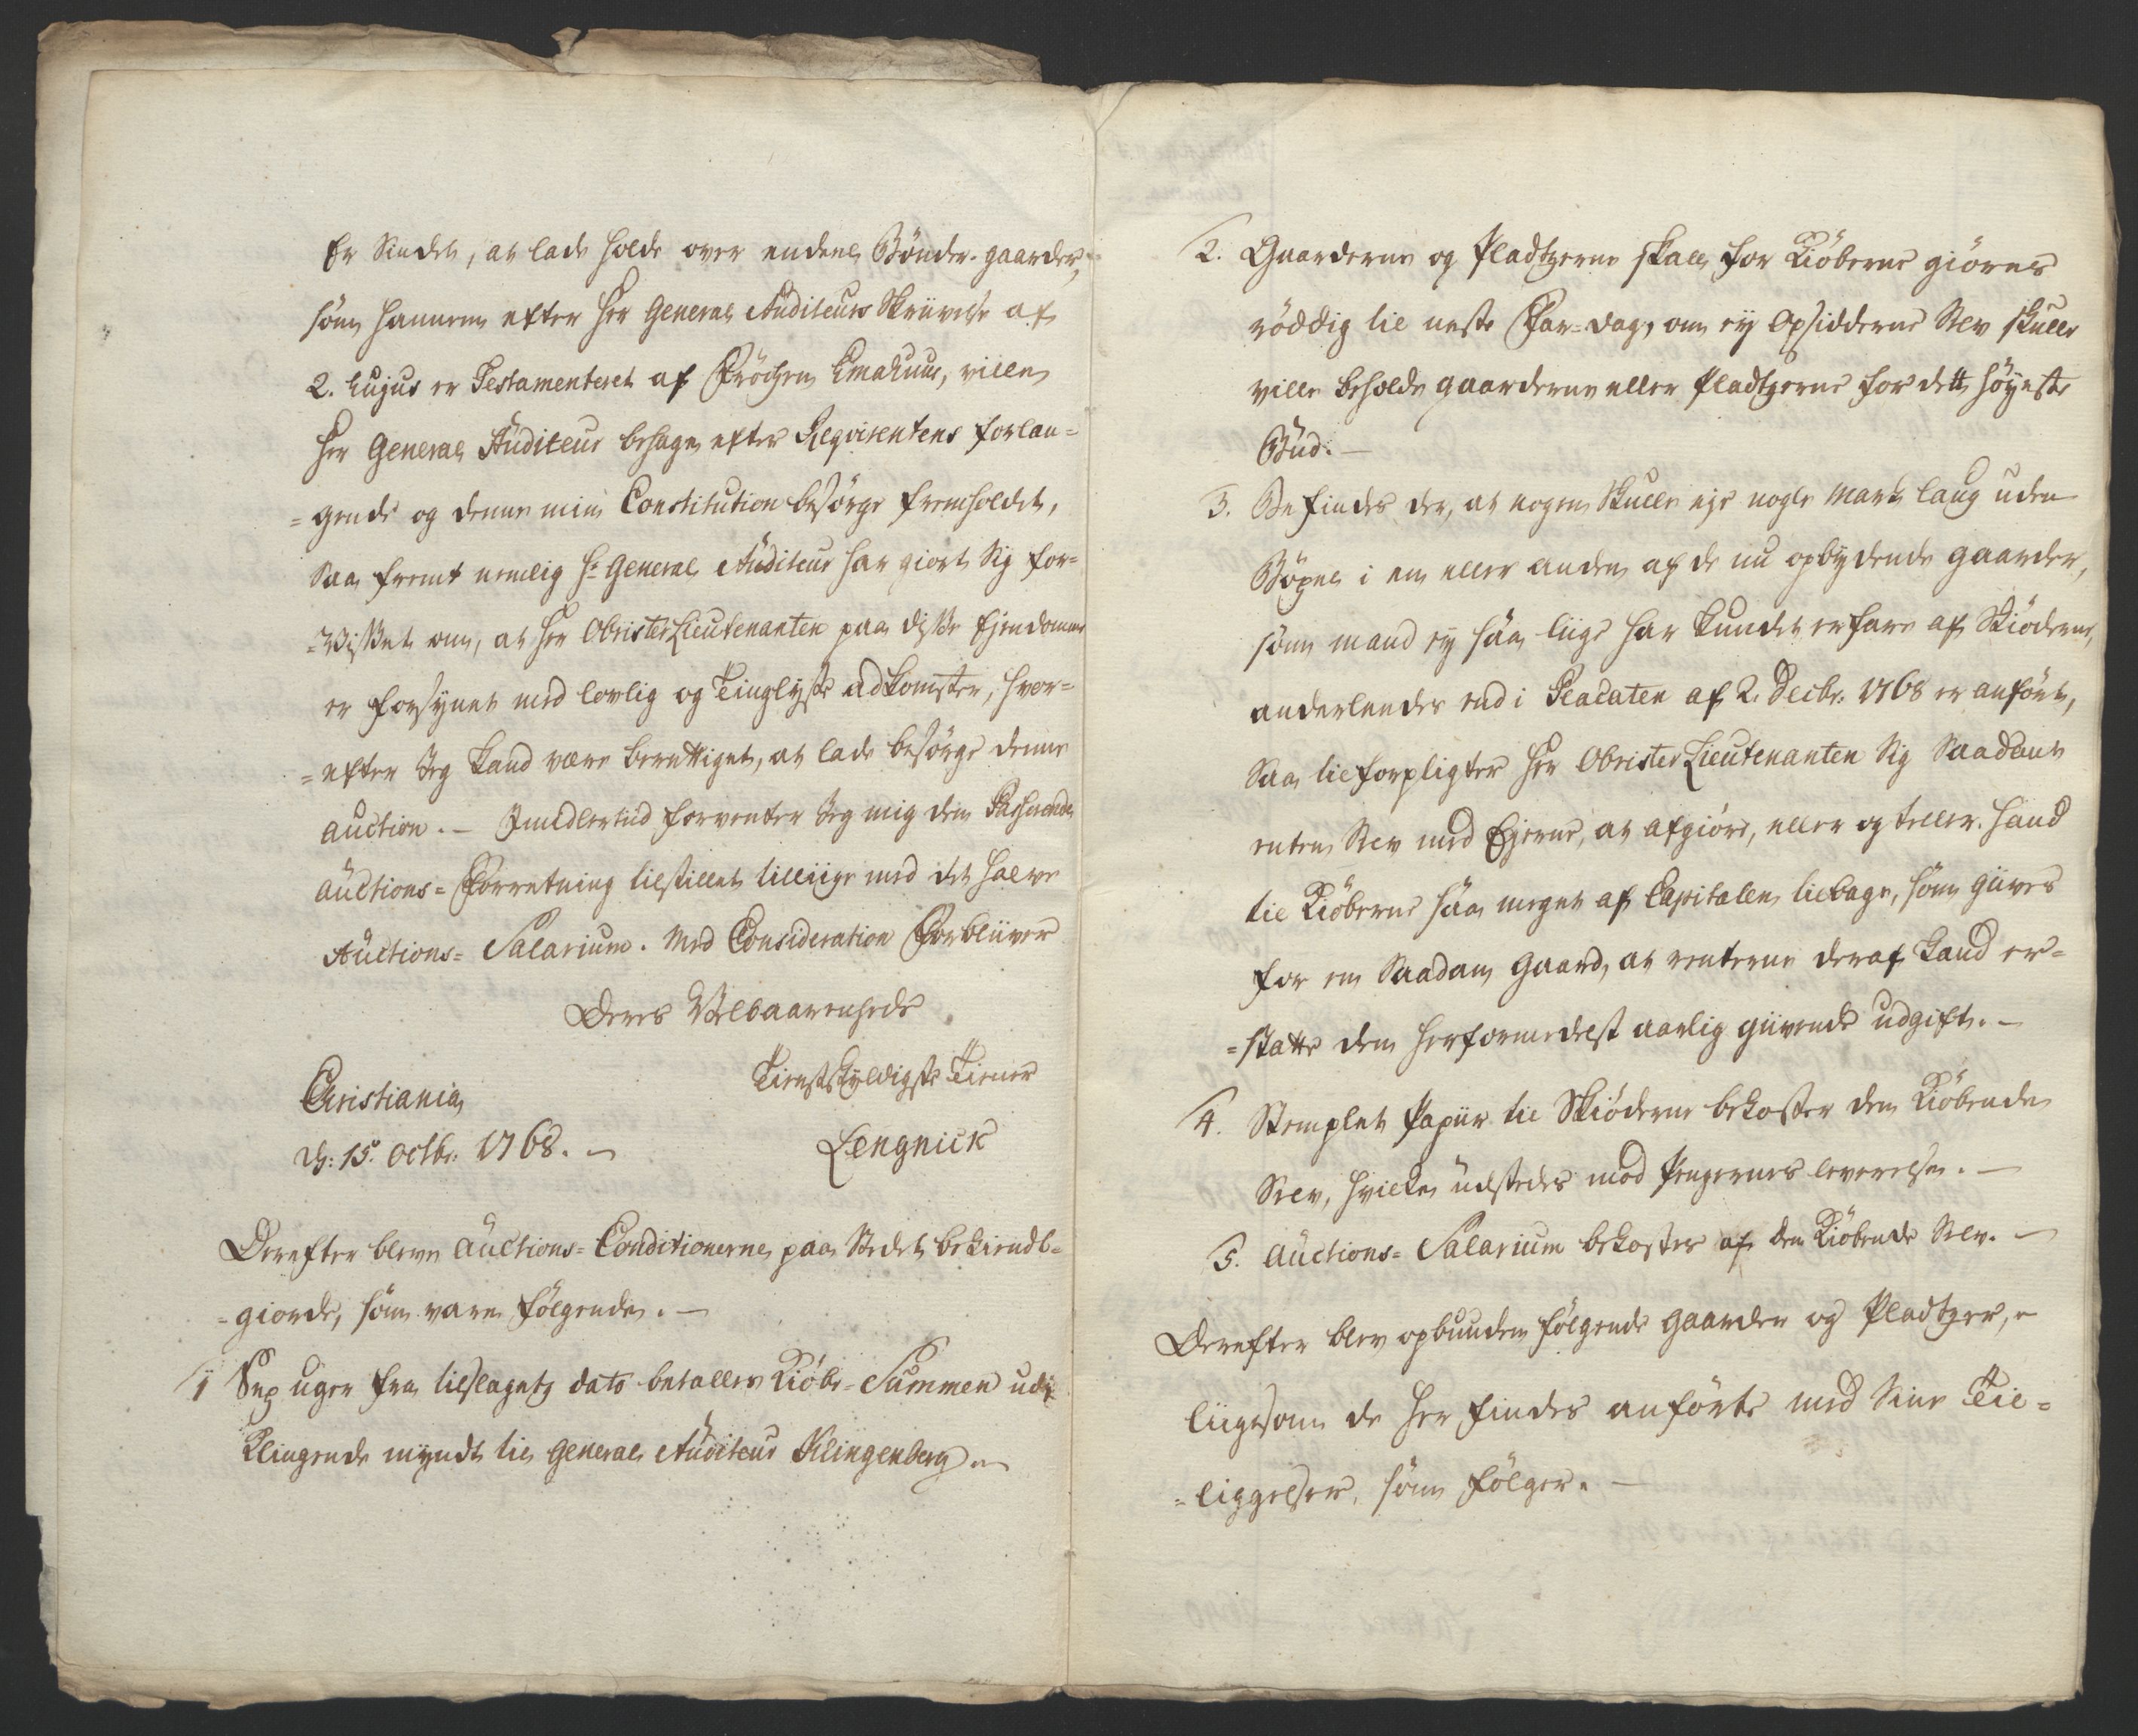 er Sindet, at lade holde over endeel Bönder-gaarder,
som hannem efter Her General Auditeurs Skrivelse af
2. hujus er Testamenteret af Fröchen Emahuus, ville
Her General Auditeur behage efter Reqvirentens forlan-
=gende og denne min Constitution besörge fremholdet,
Saa fremt nemlig Hr General Auditeur har giort Sig for-
=Visset om, at Her ObristeLieutenanten paa disse Ejendomme
er forsynet med lovlig og Tinglyste adkomster, hvor=
=efter Jeg kand være berettiget, at lade besörge denne
Auction. – Imidlertiid forventer Jeg mig den Passerende
Auctions= Forretning tilstillet tilliige med det halve
Auctions= Salarium. Med Consideration Forbliiver
Deres Velbaarenheds
Tienstskyldigste Tiener
Christiania
d: 15. Octbr: 1768. –
Lengnick
Derefter bleve Auctions= Conditionerne paa Stedet bekiendt-
=giorde, som vare følgende. –
1 Sex uger fra tilslagets dato betalles Kiöbe=Summen udi
Klingende myndt til General Auditeur Klingenberg. –
2. Gaarderne og Pladtzerne skal for Kiöberne giöres
röddig til neste Far=dag, om ej Opsidderne Selv skulle
ville beholde gaarderne eller Pladtzerne for dett höyeste
Bud. –
3. Befindes der, at nogen Skulle eje nogle Mark laug uden
Böxel i een eller anden af de nu opbydende gaarder,
som mand ej saa liige har kundet erfare af Skiöderne,
anderleedes end i Placaten af 2. Decbr: 1768 er anfört,
Saa tilforpligter Her ObristeLieutenanten Sig Saadant
enten Selv med Ejerne, at afgiöre, eller og teller. Hand
til Kiöberne saa meget af Capitalen tilbage, som giives
for en Saadan Gaard, at renterne deraf kand er=
=statte dem herformedelst aarlig giivende udgift. –
4. Stemplet Papiir til Skiöderne bekoster den Kiöbende
Selv, hvilke udstedes mod Pengernes leverelse. –
5. Auctions= Salarium bekostes af den Kiöbende Selv. –
Derefter blev opbuuden følgende Gaarder og Pladtzer,
liigesom de her findes anförte med Sine Til=
=liggelser, som fölger. –